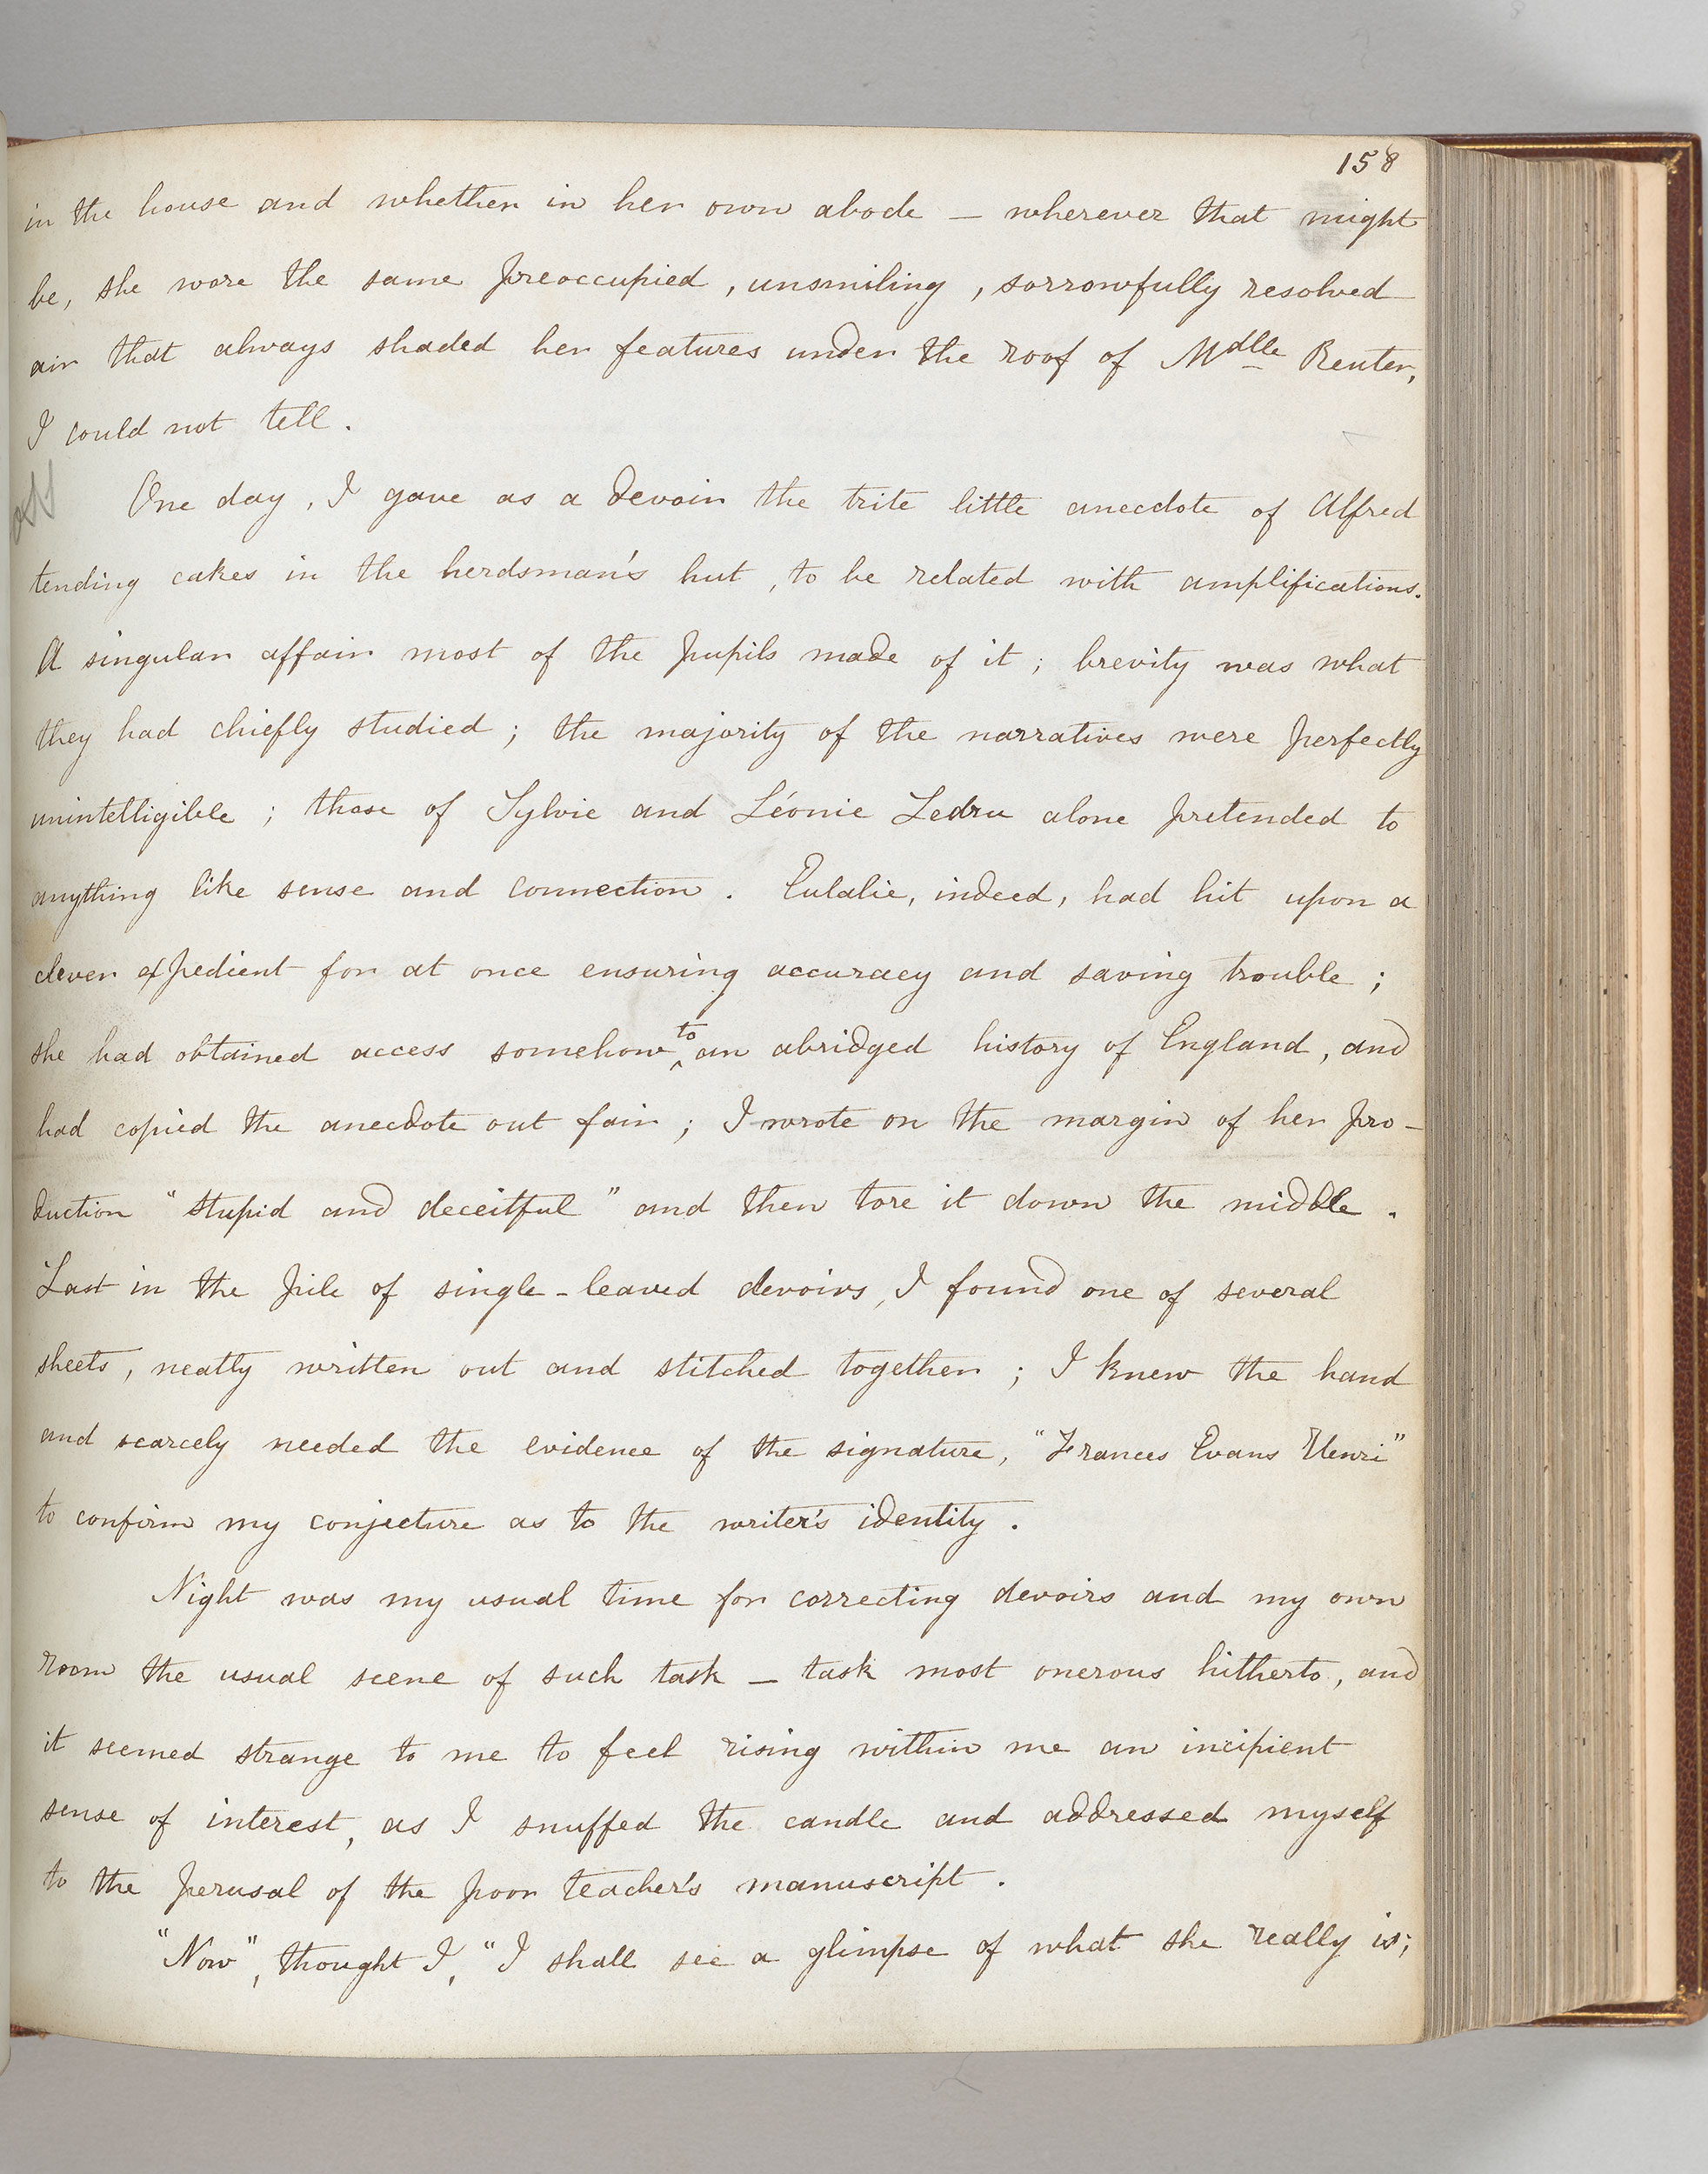 158
in the house and whether in her own abode — wherever that might
be, she wore the same preoccupied, unsmiling, sorrowfully resolved
air that always shaded her features under the roof of Mdlle Reuter,
I could not tell.
One day, I gave as a devoir the trite little anecdote of Alfred
tending cakes in the herdsman's hut, to be related with amplifications.
A singular affair most of the pupils made of it; brevity was what
they had chiefly studied; the majority of the narratives were perfectly
unintelligible; those of Sylvie and Léonie Ledru alone pretended to
anything like sense and connection. Eulalie, indeed, had hit upon a
clever expedient for at once ensuring accuracy and saving trouble;
she had obtained access somehow to an abridged history of England, and
had copied the anecdote out fair; I wrote on the margin of her pro-
duction "stupid and deceitful" and then tore it down the middle.
Last in the pile of single-leaved devoirs, I found one of several
sheets, neatly written out and stitched together; I knew the hand
and scarcely needed the evidence of the signature, "Frances Evans Henri"
to confirm my conjecture as to the writer's identity.
Night was my usual time for correcting devoirs and my own
room the usual scene of such task — task most onerous hitherto, and
it seemed strange to me to feel rising within me an incipient
sense of interest, as I snuffed the candle and addressed myself
to the perusal of the poor teacher's manuscript.
"Now", thought I, "I shall see a glimpse of what she really is;